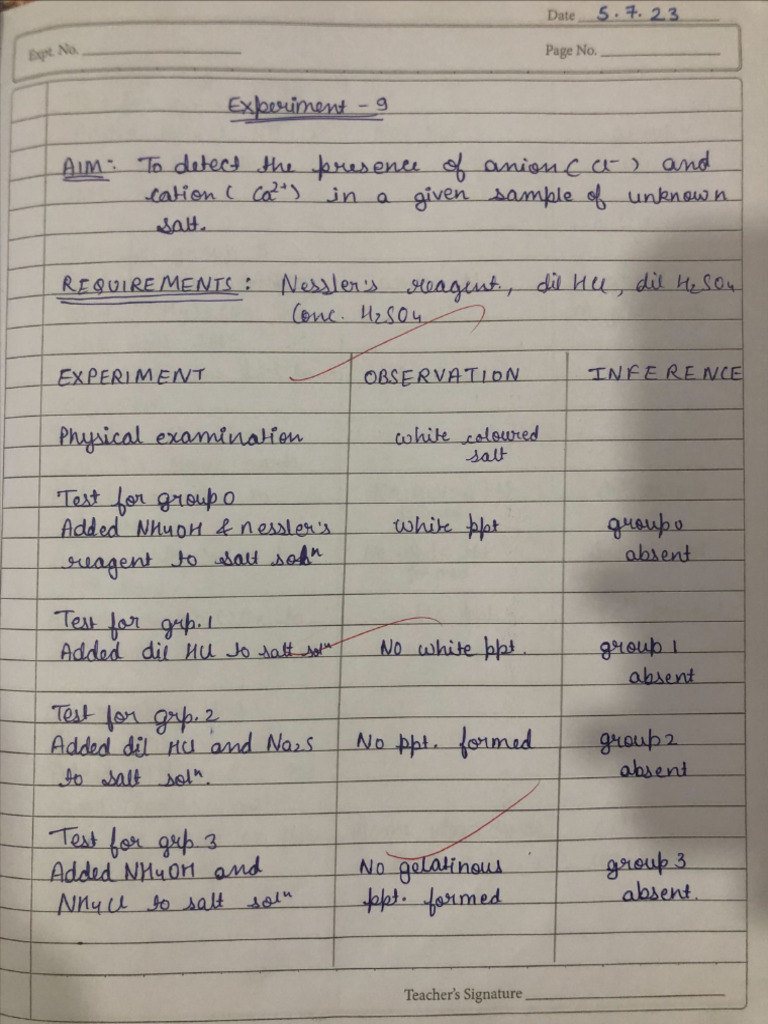 Date 5.7.23
Expt. No.
Page No.
Experiment - 9
AIM: To detect the presence of anion (Cl-) and
cation ( Ca2+) in a given sample of unknown
salt.
REQUIREMENTS: Nessler's reagent, dil HCl, dil H2SO4
Conc. H2SO4
EXPERIMENT OBSERVATION INFERENCE
Physical examination white coloured
salt
Test for group 0
Added NH4OH & nessler's white ppt group 0
reagent to salt soln absent
Test for grp. 1
Added dil HCl to salt soln No white ppt. group 1
absent
Test for grp. 2
Added dil HCl and Na2S No ppt. formed group 2
to salt soln. absent
Test for grp. 3
Added NH4OH and No gelatinous group 3
NH4Cl to salt soln ppt. formed absent.
Teacher's Signature